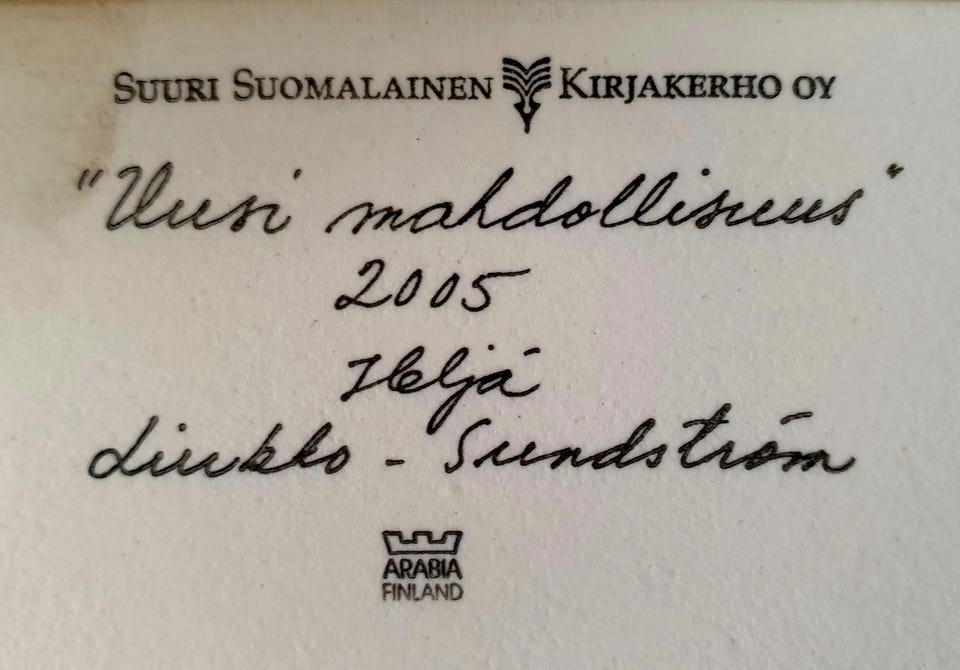 SUURI SUOMALAINEN KIRJAKERHO OY
"Uusi mahdollisuus"
2005
Heljä
Liukko-Sundström
ARABIA
FINLAND